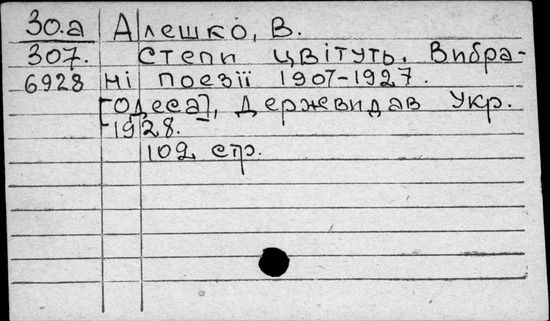 30.а Алешко, В.
307. Степи цвітуть. Вибра-
6928 ні поезії 1907-1927.
[Одеса], Державидав Укр.
1928.
102 стр.